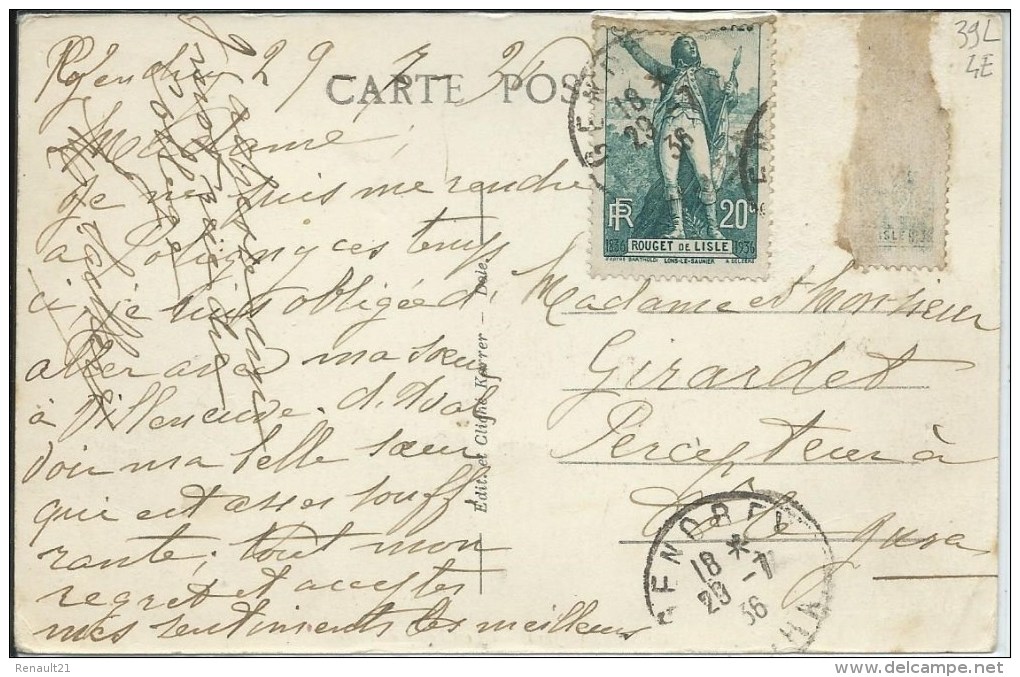 39L
4E
CARTE POS
29 - 7 - 36
Madame,
Je ne puis me rendre
à Poligny ces temps
ci, je suis obligée d'
aller avec ma sœur
à Villeneuve. d. Aval
voir ma belle sœur
qui est assez souff
rante, tout mon
regret et acceptez
mes sentiments les meilleurs
Edit. et Cliché Karrer - Dole.
RF
20c
1836 ROUGET DE LISLE 1936
LONS-LE-SAUNIER
18 *
29 -7
36
Madame et Monsieur
Girardet
Percepteur à
Jura
GENDREY
18 *
29 -7
36
JURA
Renault21
delcampe.net